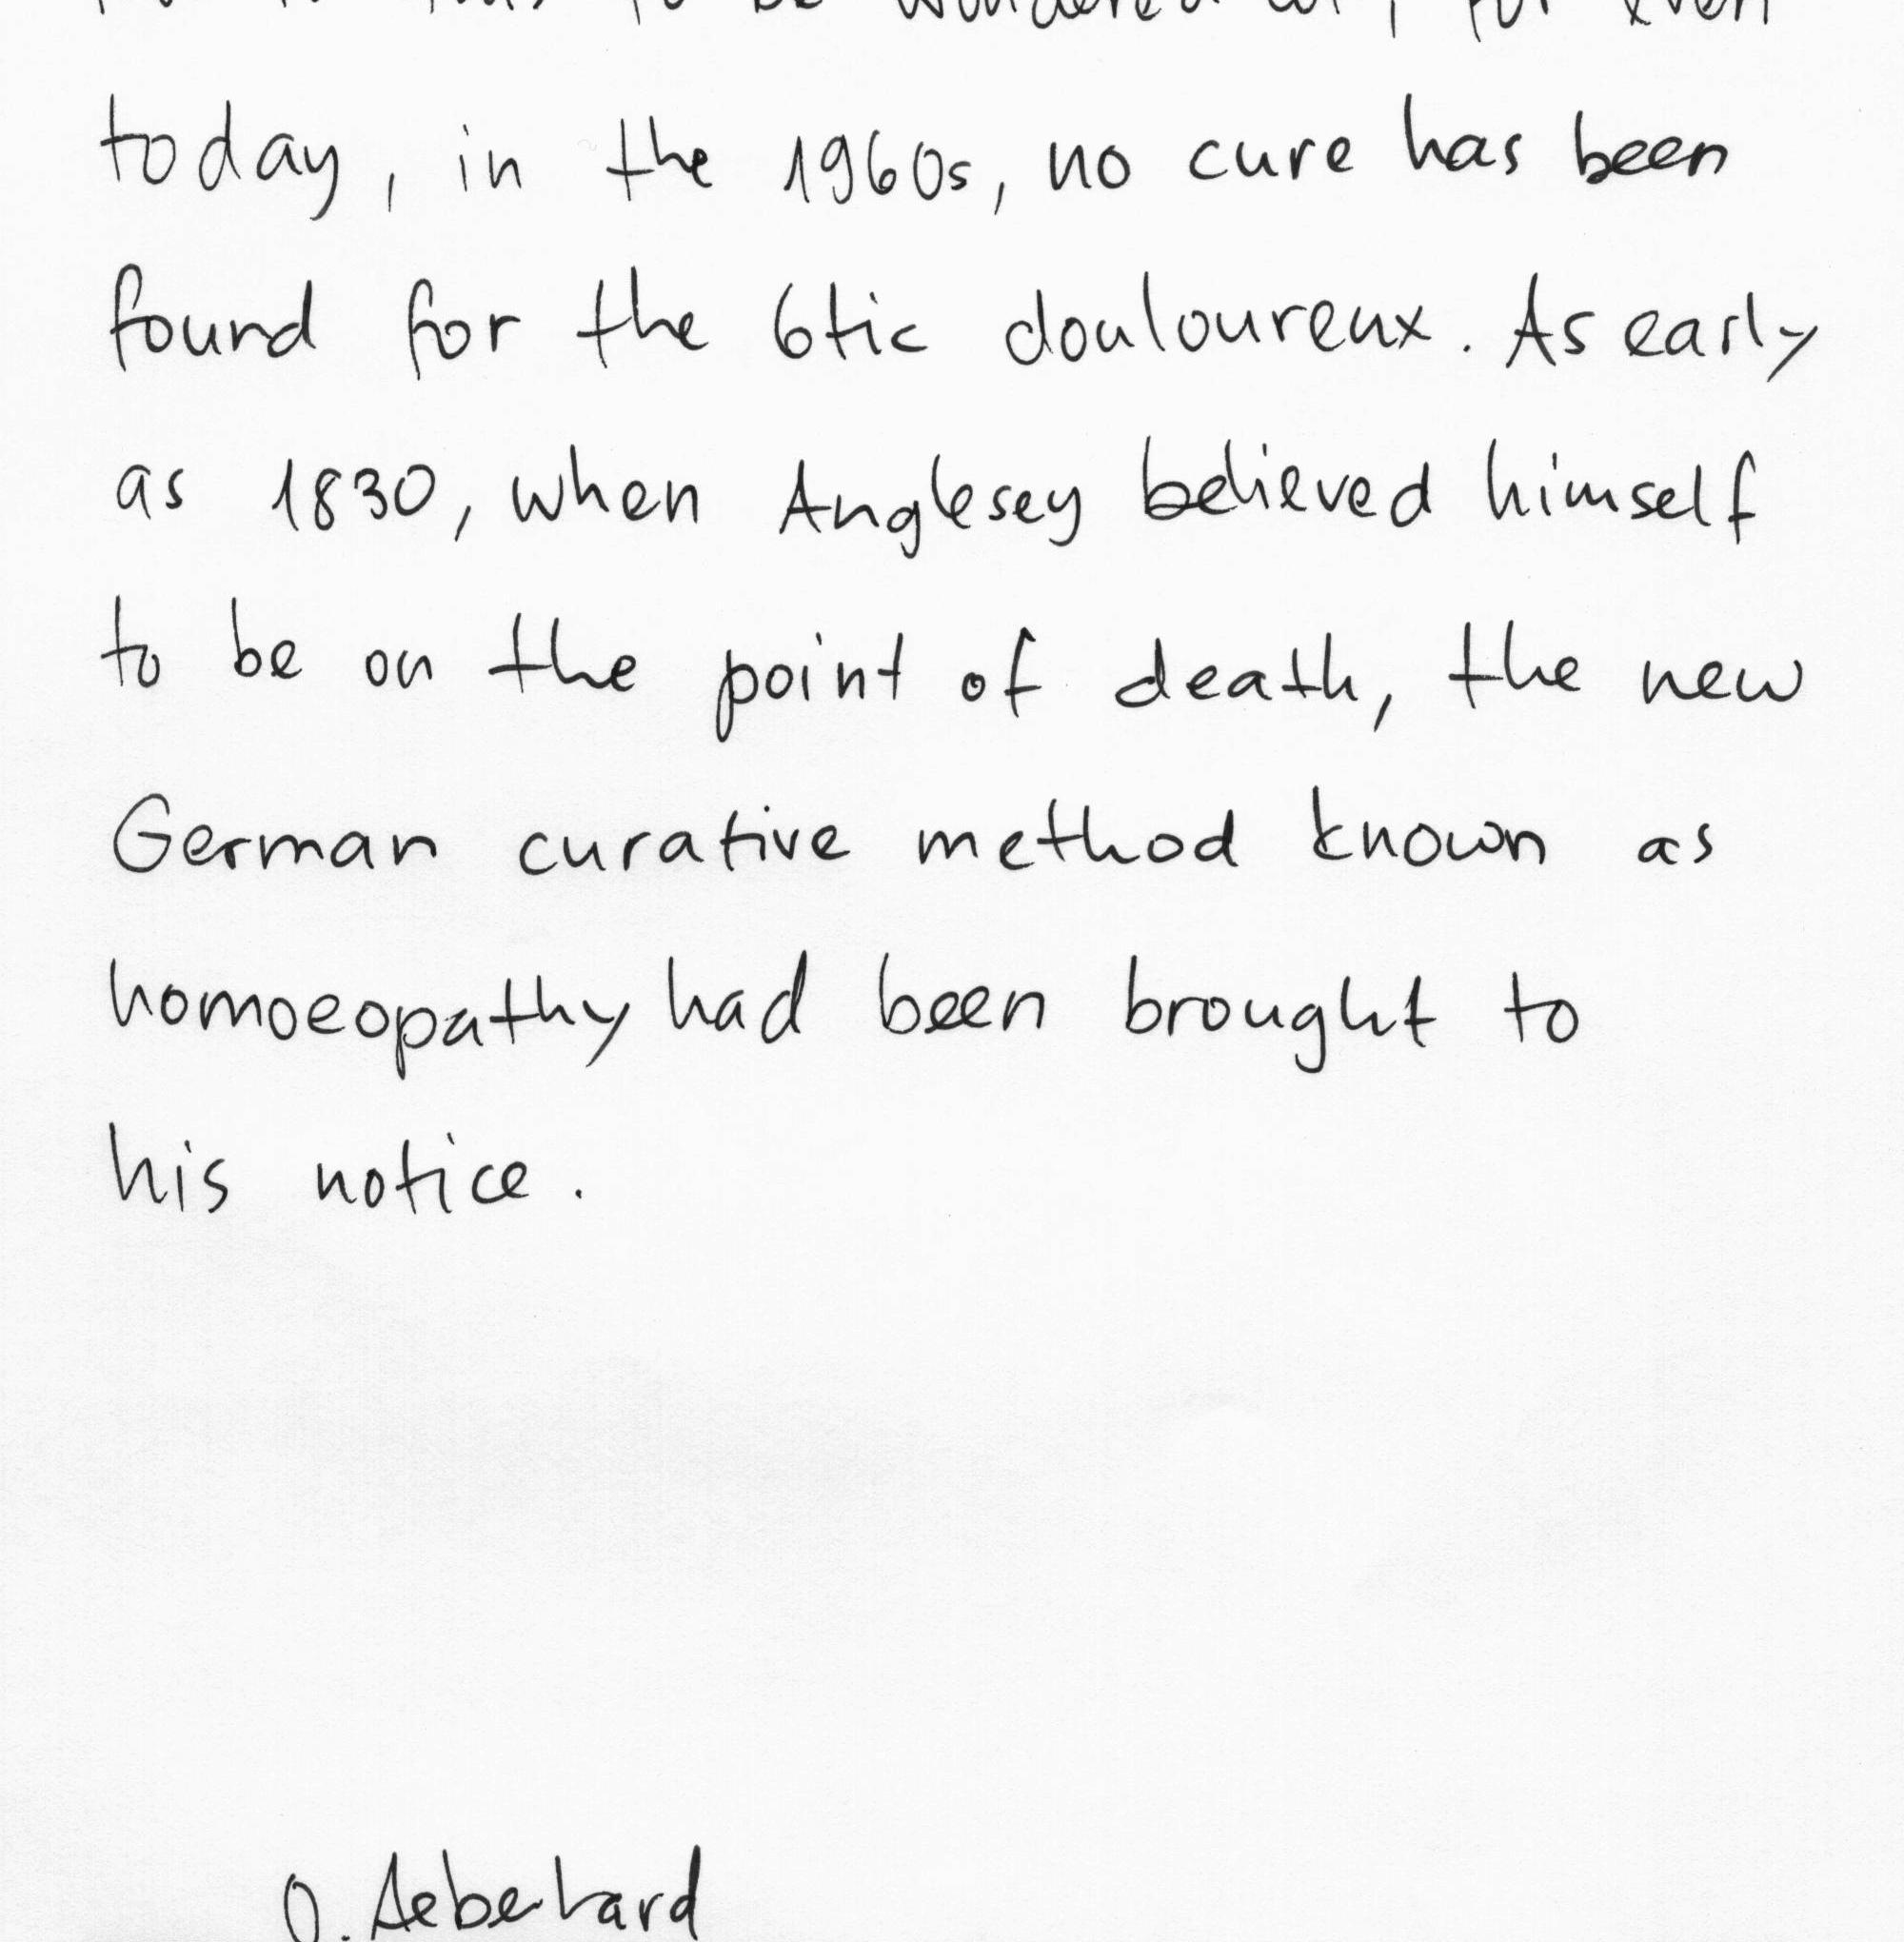 to be wondered at, for even
today, in the 1960s, no cure has been
found for the 6tic douloureux. As early
as 1830, when Anglesey believed himself
to be on the point of death, the new
German curative method known as
homoeopathy had been brought to
his notice.
O. Aeberhard